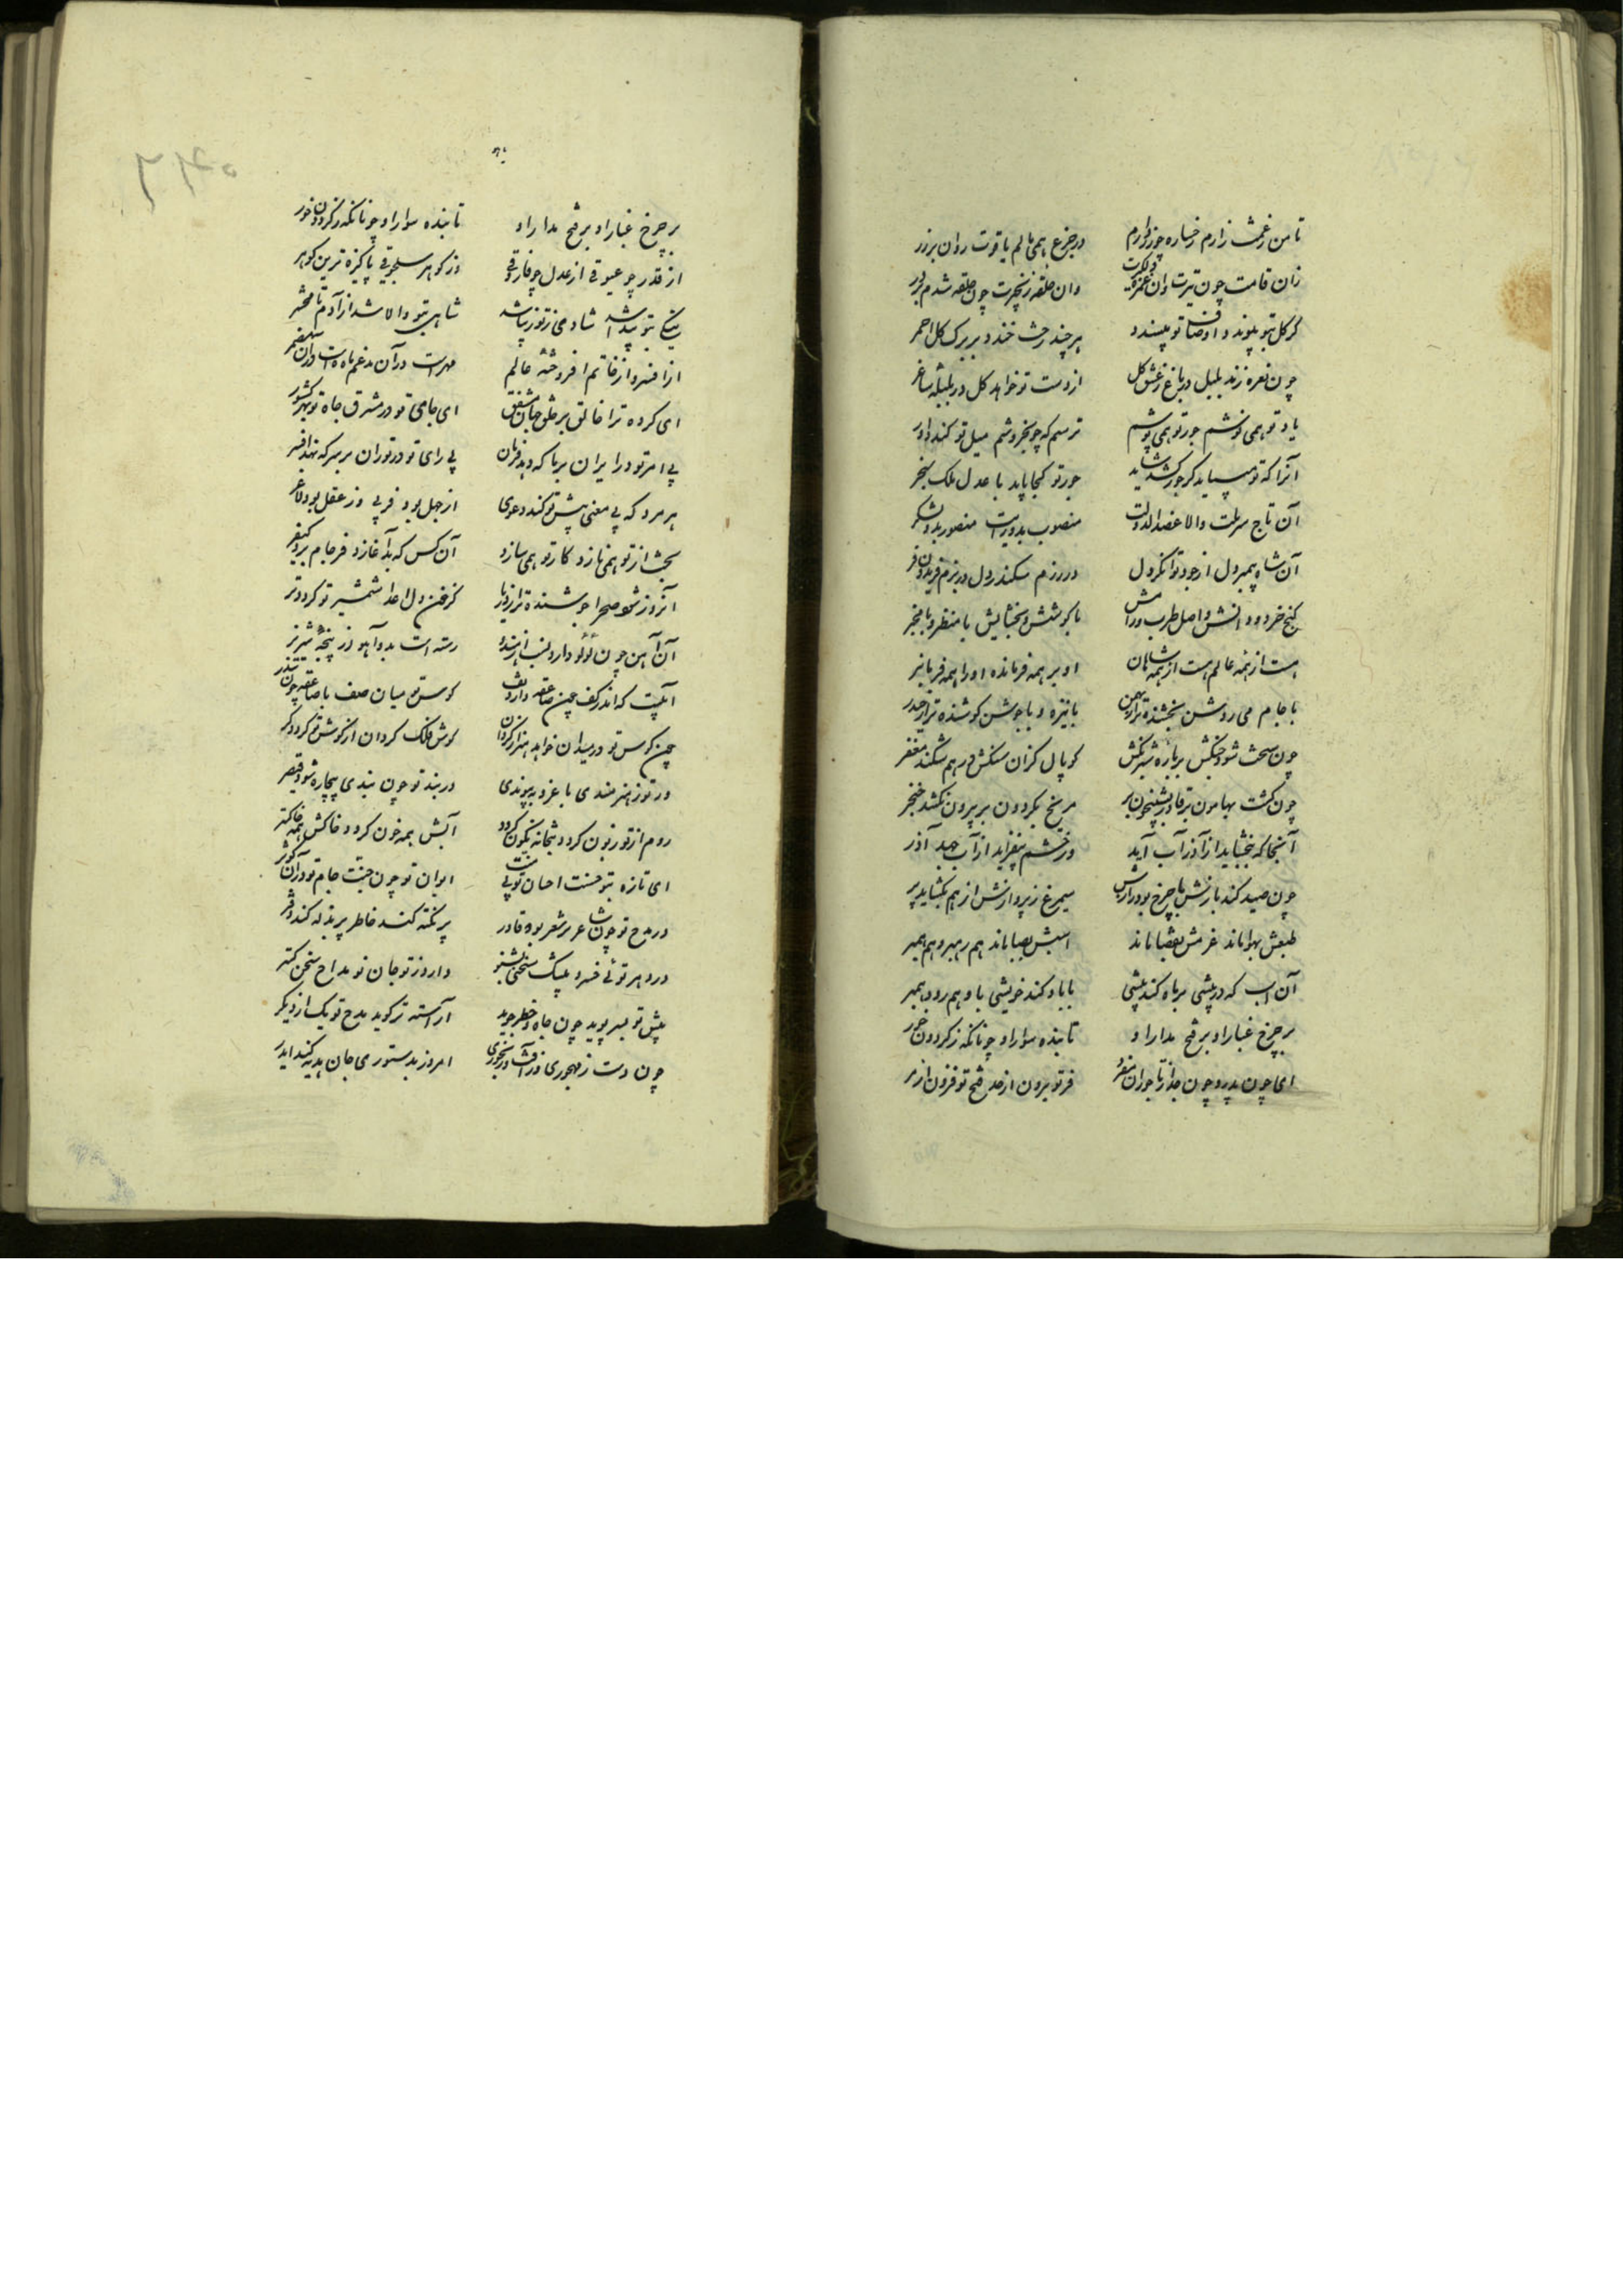 تا من ز غمش زارم رخساره چو زر دارم در جزع همی مالم یاقوت روان بر زر
زان قامت چون تیرت وان حلقه زنجیرت چون حلقه شدم بر در
گر گل بتو پیوندد اوصاف تو بپسندد هر چند رخت خندد بر برگ گل احمر
چون نعره زند بلبل در باغ ز عشق گل از دست تو خواهد گل در بلبله ساغر
یاد تو همی نوشم جور تو همی پوشم ترسم که چو بخروشم میل تو کند داور
آنرا که تو جور کشد شاید جور تو کجا پاید با عدل ملک سنجر
آن تاج سر ملت والا عضدالدولت منصوب بدو رایت منصور بدو لشکر
آن شاه پیمبر دل از جود توانگر دل در رزم سکندر دل در بزم فریدون فر
گنج خرد و دانش واصل طرب و رامش با کوشش و بخشایش با منظر و با مخبر
هست از همه عالم هست از همه شاهان او بر همه فرمانده او را همه فرمانبر
با جام می روشن بخشنده تر از بهمن با نیزه و با جوشن کوشنده تر از حیدر
چون سخت شود جنگش بر باره شبرنگش کوپال گران سنگش در هم شکند مغفر
چون گشت بهامون بر قادر بشبیخون بر مریخ بگردون بر بیرون نکشد خنجر
آنجا که ببخشاید از آذر آب آید ور خشم بیفزاید از آب جهد آذر
چون صید کند بازش با چرخ بود رازش سیمرغ ز پروازش از هم بگشاید پر
طبعش بهوا ماند عزمش بقضا ماند اسبش بصبا ماند هم رهبر و هم همبر
آن اسب که در پیشی بر باد کند پیشی با باد کند خویشی با وهم رود همبر
بر چرخ غبار او بر فتح مدار او تابنده سوار او چونانکه ز گردون خور
ای چون پدر و چون جد از تاجوران مفرد فر تو برون از حد فتح تو فزون از مر
بر چرخ غبار او بر فتح مدار او تابنده سوار او چونانکه ز گردون خور
از قدر چو عیوقی از عدل چو فاروقی وز گوهر سلجوقی پاکیزه ترین گوهر
نیکی بتو پیدا شد شادی ز تو زیبا شد شاهی بتو والا شد از آدم تا محشر
از افسر و از خاتم افروخته عالم مهر است در آن مدغم ماه است در آن مضمر
ای کرده ترا خالق بر خلق جهان مشفق ای حامی تو در مشرق جاه تو بهر کشور
بی امر تو در ایران بر پا که دهد فرمان بی رای تو در توران بر سر که نهد افسر
هر مرد که بی معنی پیش تو کند دعوی از جهل بود فربی وز عقل بود لاغر
بخت از تو همی نازد کار تو همی سازد آن کس که بد آغازد فرجام برد کیفر
آنروز شود صحرا جوشنده تر از دریا کز خون دل اعدا شمشیر تو گردد تر
آن آهن چون لؤلؤ دارد لب رسته است بدو آهو از پنجه شیر نر
آبیست که اندر کف چون صاعقه دارد تف کوس تو میان صف با صاعقه چون تندر
چون کوس تو در میدان خواهد هنر از گردان گوش فلک گردان از کوشش تو گردد کر
در توز هنرمندی با غزو بپیوندی در بند تو چون بندی بیچاره شود قیصر
روم از تو زبون گردد بتخانه نگون گردد آبش همه خون گردد خاکش همه خاکستر
ای تازه بتو سنت احسان تو بی منت ایوان تو چون جنت جام تو در آن کوثر
در مدح تو چون شاعر بر شعر بود قادر پر نکته کند خاطر پر بذله کند دفتر
در دهر توئی خسرو لبیک سخن بشنو دارد ز تو جان نو مداح سخن گستر
پیش تو بسر پوید چون جاه و خطر جوید آراسته تر گوید مدح تو یک از دیگر
چون دست ز مهجوری وز آفت رنجوری امروز بدستوری جان هدیه کند ایدر